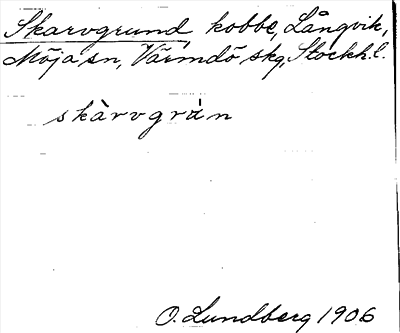 Skarvgrund kobbe, Långvik,
Möja sn, Värmdö skg, Stockh. l.
skàrvgrän
O. Lundberg 1906